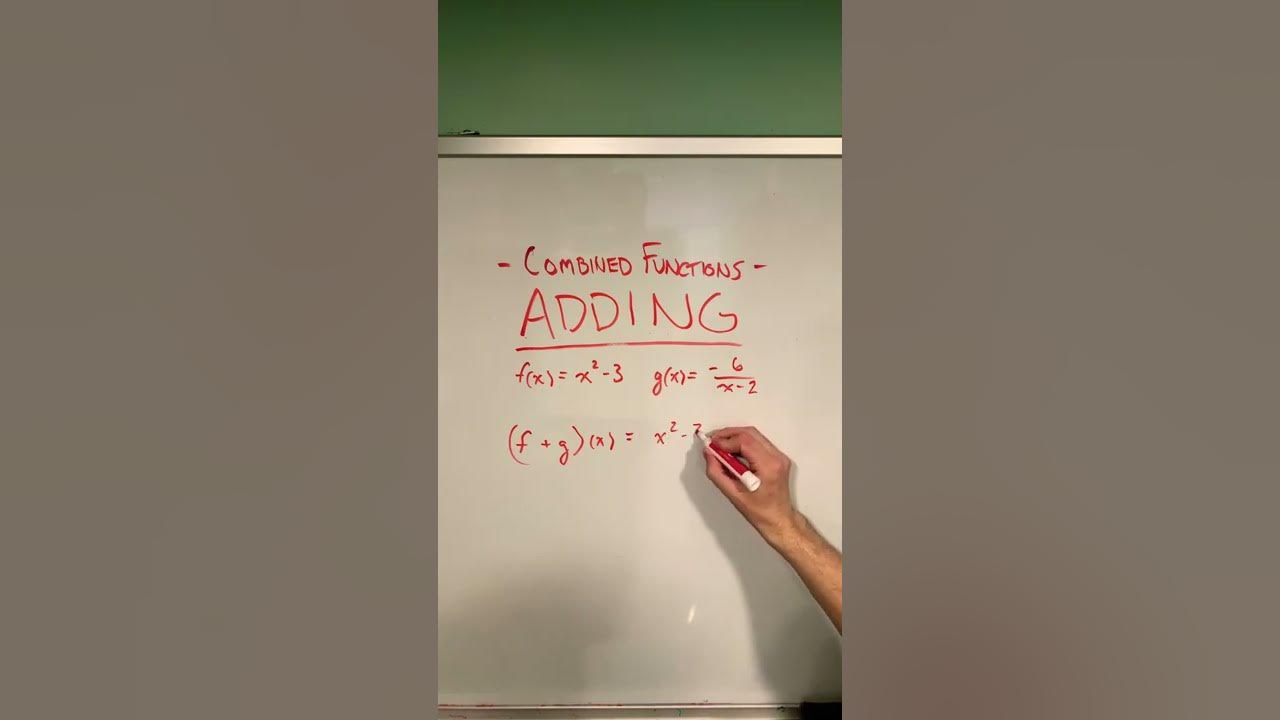 - COMBINED FUNCTIONS -
ADDING
f(x) = x² - 3 g(x) = - 6/(x - 2)
(f + g)(x) = x² - 3